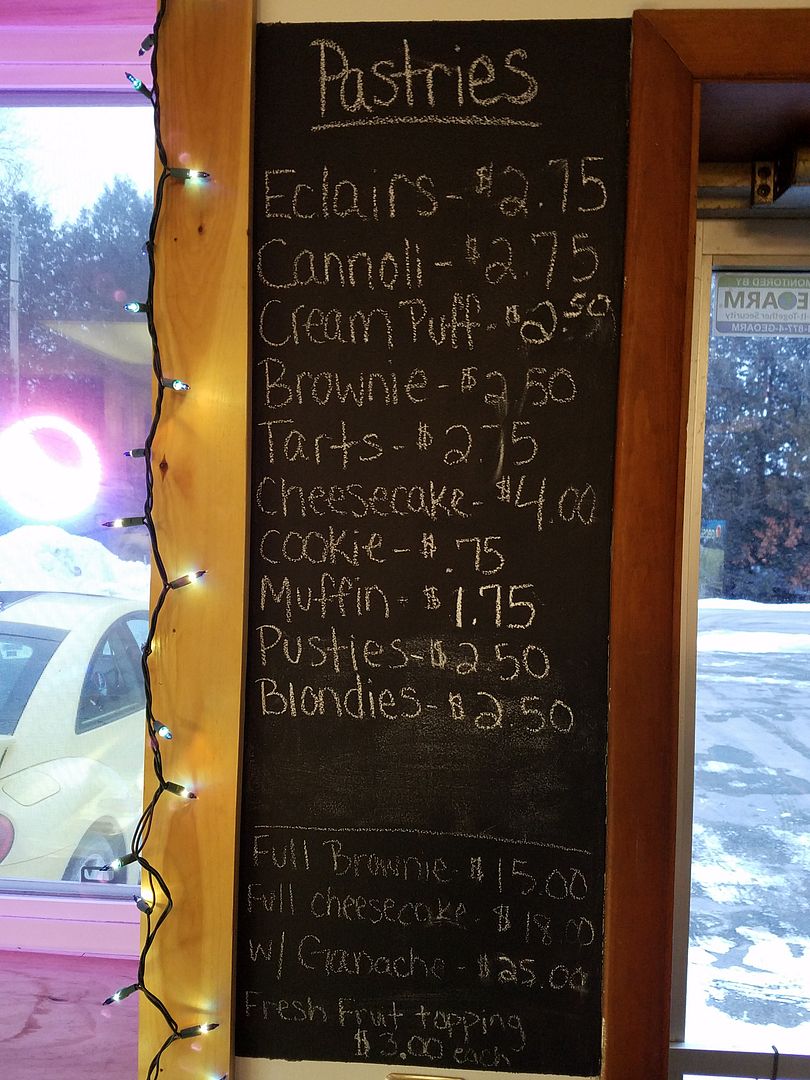 Pastries
Eclairs - $2.75
Cannoli - $2.75
Cream Puff - $2.50
Brownie - $2.50
Tarts - $2.75
Cheesecake - $4.00
Cookie - $.75
Muffin - $1.75
Pusties - $2.50
Blondies - $2.50
Full Brownie - $15.00
Full cheesecake - $18.00
w/ Ganache - $25.00
Fresh Fruit topping
$3.00 each
MONITORED BY
GEOARM
It-Together Security
877-4-GEOARM